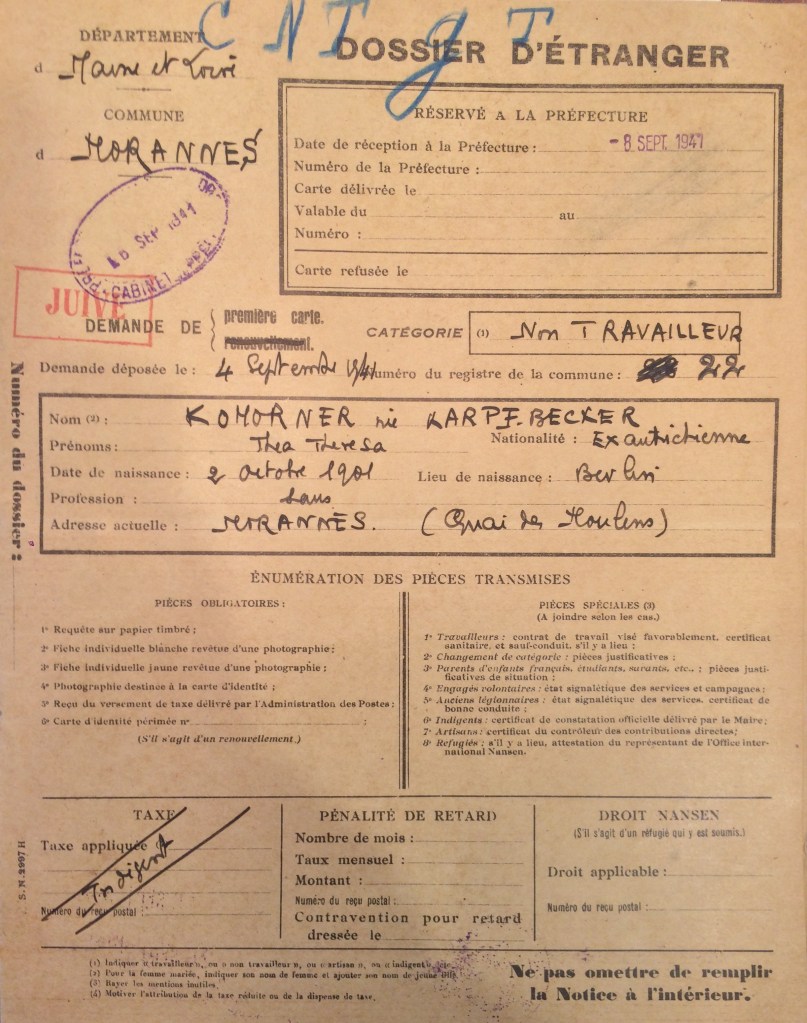 C N T g T
DÉPARTEMENT
d Maine et Loire
COMMUNE
d MORANNES
DOSSIER D'ÉTRANGER
RÉSERVÉ A LA PRÉFECTURE
Date de réception à la Préfecture : - 8 SEPT. 1941
Numéro de la Préfecture :
Carte délivrée le
Valable du au
Numéro :
Carte refusée le
SEP 1941
CABINET
JUIVE
DEMANDE DE { première carte.
renouvellement.
CATÉGORIE (1) Non TRAVAILLEUR
Demande déposée le : 4 Septembre 1941 Numéro du registre de la commune : 22
Numéro du dossier :
Nom (2) : KOMORNER née KARPF. BECKER
Prénoms : Thea Theresa Nationalité : Ex autrichienne
Date de naissance : 2 octobre 1901 Lieu de naissance : Berlin
Profession : Sans
Adresse actuelle : MORANNES. (Quai des Moulins)
ÉNUMÉRATION DES PIÈCES TRANSMISES
PIÈCES OBLIGATOIRES :
1° Requête sur papier timbré ;
2° Fiche individuelle blanche revêtue d'une photographie ;
3° Fiche individuelle jaune revêtue d'une photographie ;
4° Photographie destinée à la carte d'identité ;
5° Reçu du versement de taxe délivré par l'Administration des Postes ;
6° Carte d'identité périmée n° ;
(S'il s'agit d'un renouvellement.)
PIÈCES SPÉCIALES (3)
(A joindre selon les cas.)
1° Travailleurs : contrat de travail visé favorablement, certificat
sanitaire, et sauf-conduit, s'il y a lieu ;
2° Changement de catégorie : pièces justificatives ;
3° Parents d'enfants français, étudiants, savants, etc.. : pièces justi-
ficatives de situation ;
4° Engagés volontaires : état signalétique des services et campagnes ;
5° Anciens légionnaires : état signalétique des services, certificat de
bonne conduite ;
6° Indigents : certificat de constatation officielle délivré par le Maire ;
7° Artisans : certificat du contrôleur des contributions directes ;
8° Refugiés : s'il y a lieu, attestation du représentant de l'Office inter-
national Nansen.
TAXE
Taxe appliquée :
Indigent
Numéro du reçu postal :
PÉNALITÉ DE RETARD
Nombre de mois :
Taux mensuel :
Montant :
Numéro du reçu postal :
Contravention pour retard
dressée le
DROIT NANSEN
(S'il s'agit d'un réfugié qui y est soumis.)
Droit applicable :
Numéro du reçu postal :
S. N. 2997 H
(1) Indiquer « travailleur », ou « non travailleur », ou « artisan », ou « indigent », etc.
(2) Pour la femme mariée, indiquer son nom de femme et ajouter son nom de jeune fille.
(3) Rayer les mentions inutiles.
(4) Motiver l'attribution de la taxe réduite ou de la dispense de taxe.
Ne pas omettre de remplir
la Notice à l'intérieur.